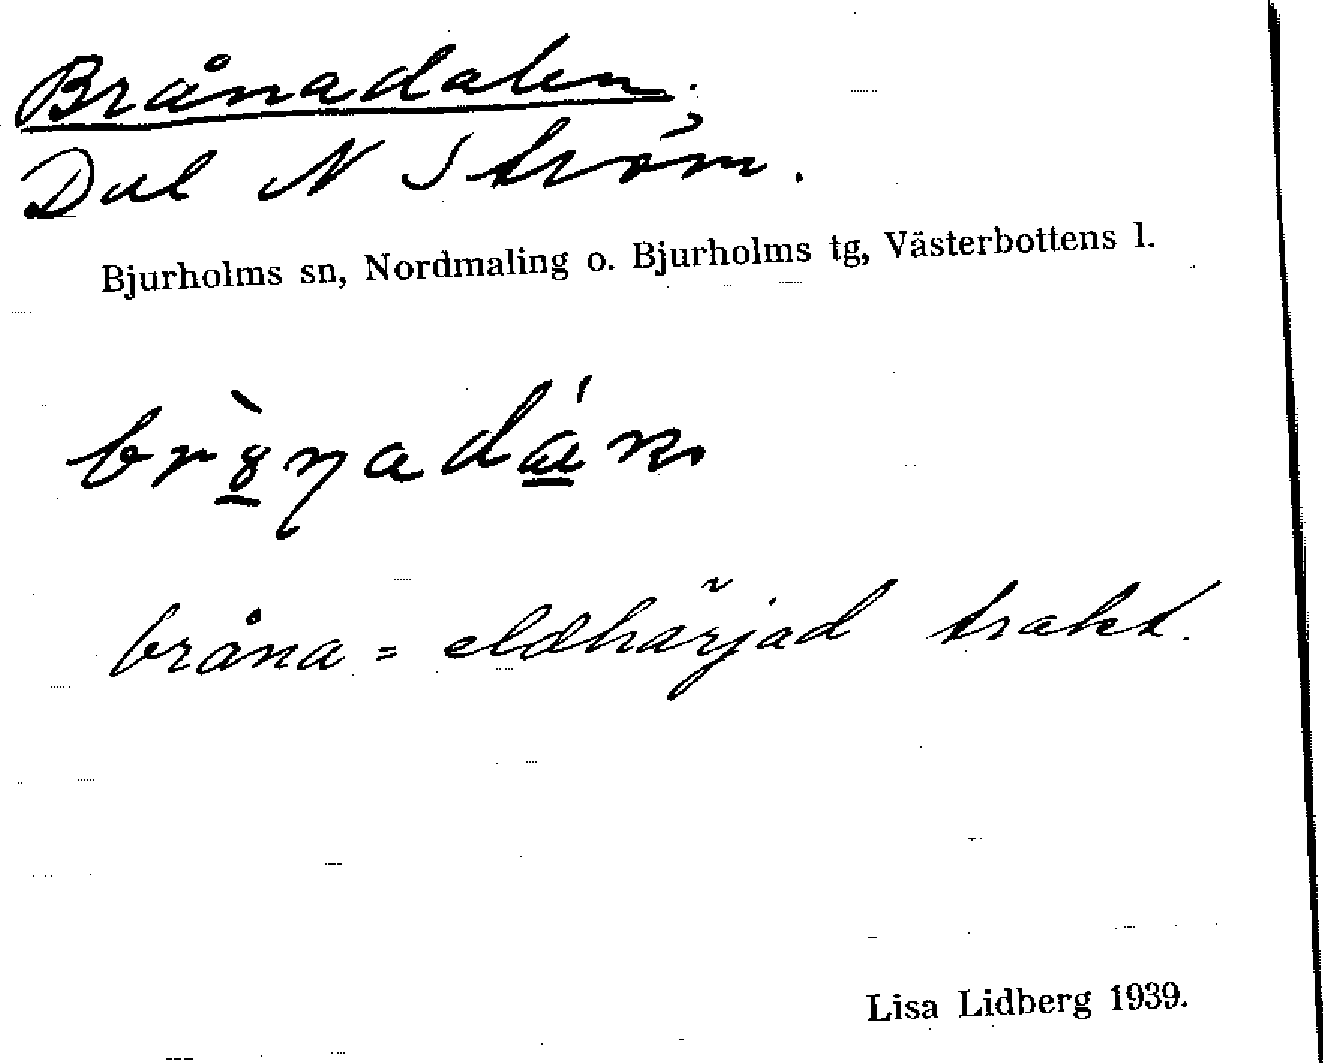 Brånadalen.
Dal N Ström.
Bjurholms sn, Nordmaling o. Bjurholms tg, Västerbottens l.
bråna = eldhärjad trakt.
Lisa Lidberg 1939.